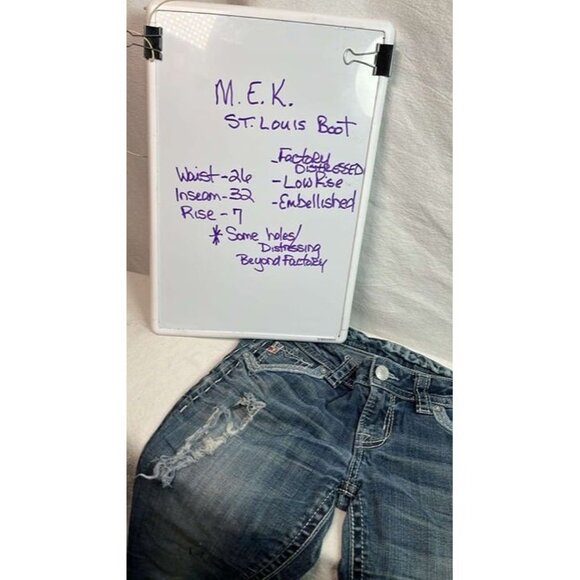 M.E.K.
ST. Louis Boot
- Factory
DISTRESSED
Waist - 26
- Low Rise
Inseam - 32
- Embellished
Rise - 7
* Some holes/
Distressing
Beyond Factory